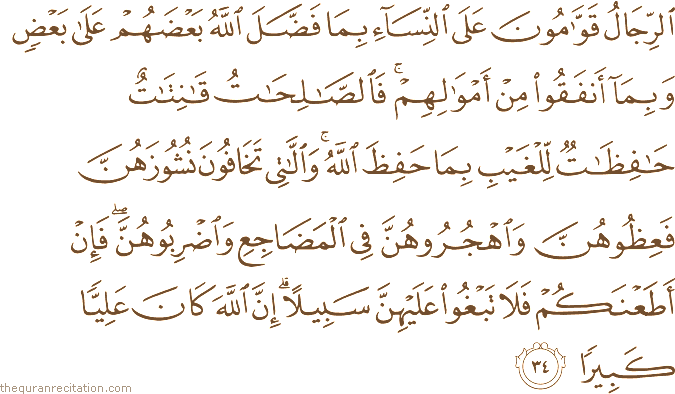 ٱلرِّجَالُ قَوَّٰمُونَ عَلَى ٱلنِّسَآءِ بِمَا فَضَّلَ ٱللَّهُ بَعۡضَهُمۡ عَلَىٰ بَعۡضٍ
وَبِمَآ أَنفَقُواْ مِنۡ أَمۡوَٰلِهِمۡۚ فَٱلصَّٰلِحَٰتُ قَٰنِتَٰتٌ
حَٰفِظَٰتٞ لِّلۡغَيۡبِ بِمَا حَفِظَ ٱللَّهُۚ وَٱلَّٰتِي تَخَافُونَ نُشُوزَهُنَّ
فَعِظُوهُنَّ وَٱهۡجُرُوهُنَّ فِي ٱلۡمَضَاجِعِ وَٱضۡرِبُوهُنَّۖ فَإِنۡ
أَطَعۡنَكُمۡ فَلَا تَبۡغُواْ عَلَيۡهِنَّ سَبِيلًاۗ إِنَّ ٱللَّهَ كَانَ عَلِيّٗا
كَبِيرٗا ٣٤
thequranrecitation.com